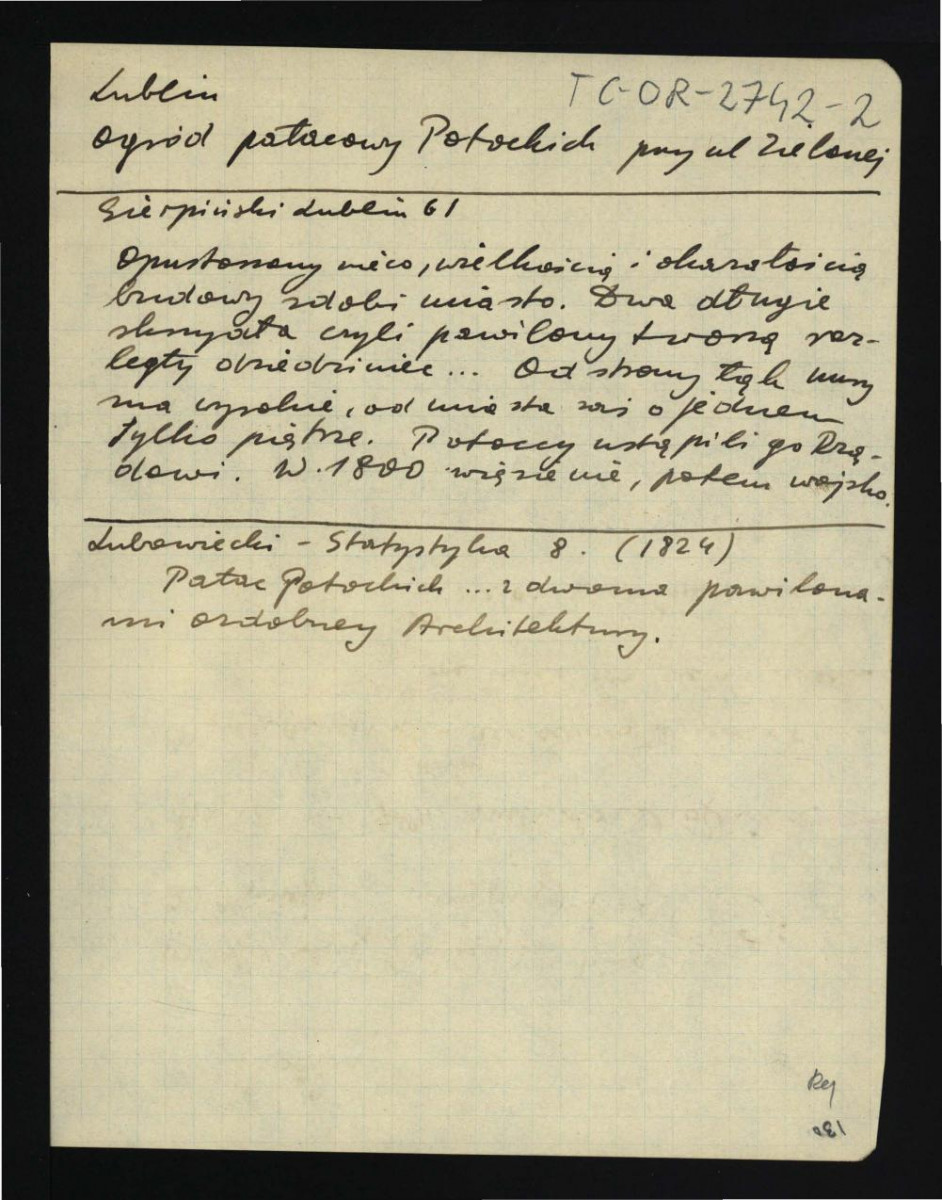 Lublin
TC-OR-2742-2
Ogród pałacowy Potockich przy ul Zielonej
Sierpiński Lublin 61
Opustoszony nieco, wielkością i okazałością
budowy zdobi miasto. Dwa długie
skrzydła czyli pawilony tworzą roz-
legły dziedziniec ... Od strony łąk
ma wysokie, od miasta zaś o jednem
tylko piętrze. Potoccy ustąpili go Rzą-
dowi. W. 1800 więzienie, potem wojsko.
Lubowiecki - Statystyka 8. (1824)
Pałac Potockich ... z dwoma pawilona-
mi ozdobney Architektury.
Rej
130